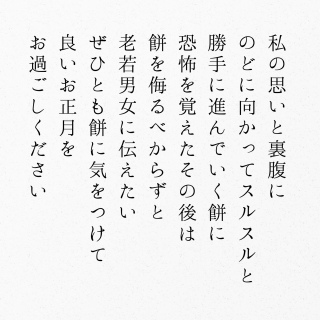 私の思いと裏腹に
のどに向かってスルスルと
勝手に進んでいく餅に
恐怖を覚えたその後は
餅を侮るべからずと
老若男女に伝えたい
ぜひとも餅に気をつけて
良いお正月を
お過ごしください